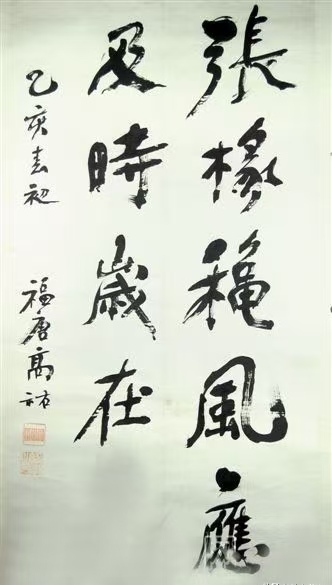 張椽穐風應
及時歲在
乙亥春初
福唐高祐